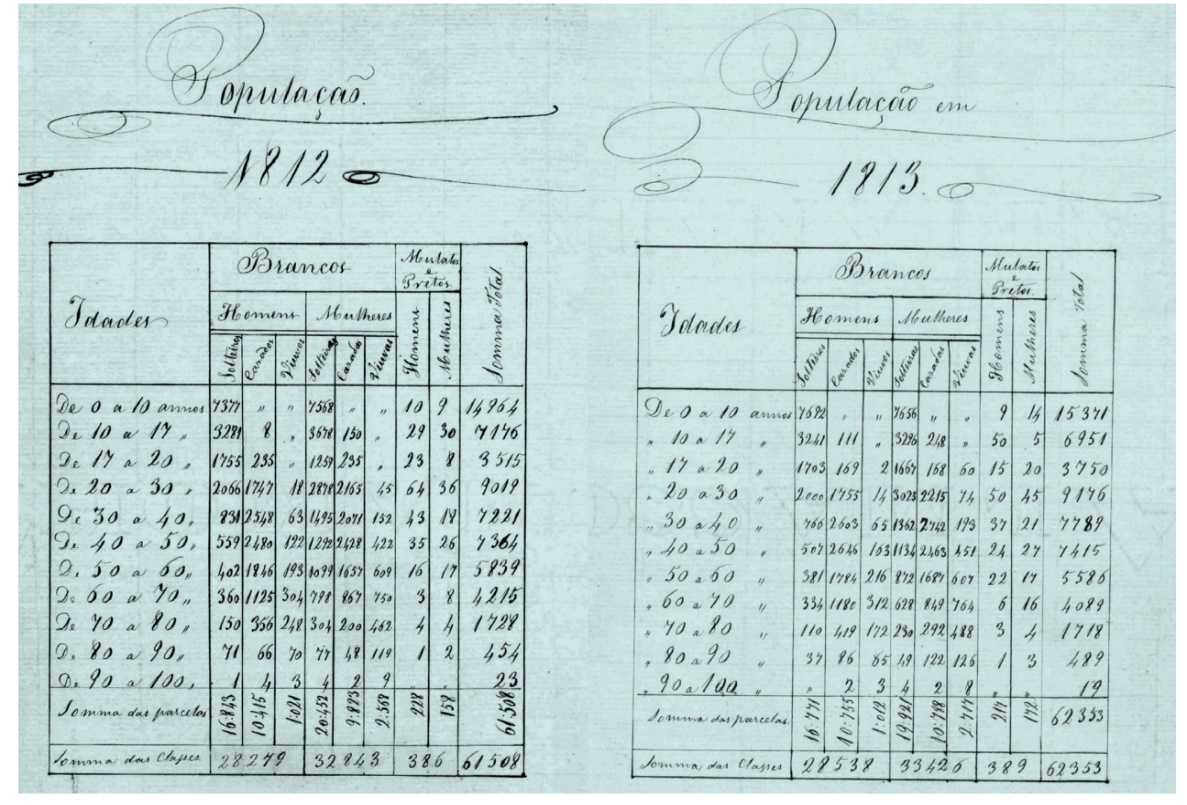 População.
1812
Brancos
Mulatos
e
Pretos
Somma Total
Idades
Homens Mulheres
Homens Mulheres
Solteiros Casados Viuvos Solteiras Casadas Viuvas
De 0 a 10 annos 7377 " " 7568 " " 10 9 14964
De 10 a 17 " 3281 8 " 3678 150 " 29 30 7176
De 17 a 20 " 1755 235 " 1259 235 " 23 8 3515
De 20 a 30 " 2066 1747 18 2878 2165 45 64 36 9019
De 30 a 40 " 831 2548 63 1495 2071 152 43 18 7221
De 40 a 50 " 559 2480 122 1292 2428 422 35 26 7364
De 50 a 60 " 402 1846 193 1099 1657 609 16 17 5839
De 60 a 70 " 360 1125 304 798 867 750 3 8 4215
De 70 a 80 " 150 356 248 304 200 462 4 4 1728
De 80 a 90 " 71 66 70 77 48 119 1 2 454
De 90 a 100 " 1 4 3 4 2 9 " " 23
Somma das parcelas 16.843 10.415 1.021 20.452 9.823 2.568 228 158 61.508
Somma das Classes 28279 32843 386 61508
População em
1813.
Brancos
Mulatos
e
Pretos.
Somma Total
Idades
Homens Mulheres
Homens Mulheres
Solteiros Casados Viuvos Solteiras Casadas Viuvas
De 0 a 10 annos 7692 " " 7656 " " 9 14 15371
" 10 a 17 " 3241 111 " 3296 248 " 50 5 6951
" 17 a 20 " 1703 169 2 1667 168 60 15 20 3750
" 20 a 30 " 2000 1755 14 3023 2215 74 50 45 9176
" 30 a 40 " 766 2603 65 1362 2742 193 37 21 7789
" 40 a 50 " 507 2646 163 1134 2463 451 24 27 7415
" 50 a 60 " 381 1784 216 872 1687 607 22 17 5586
" 60 a 70 " 334 1180 312 628 849 764 6 16 4089
" 70 a 80 " 110 419 172 230 292 488 3 4 1718
" 80 a 90 " 37 86 65 49 122 126 1 3 489
" 90 a 100 " " 2 3 4 2 8 " " 19
Somma das parcelas. 16.771 10.755 1.012 19.921 10.788 2.717 217 172 62353
Somma das Classes 28538 33426 389 62353